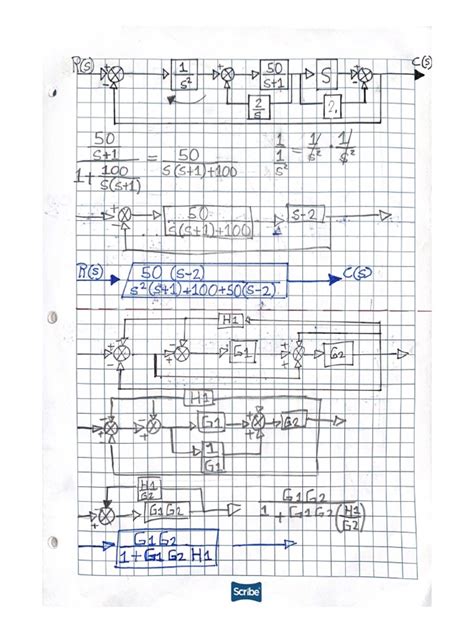 R(s) 1/s² 50/s+1 S C(s)
2/s 2
50/s+1 / 1+100/s(s+1) = 50/s(s+1)+100
1/1/s² = 1/s² · 1/s²
50/s(s+1)+100 s-2
R(s) 50 (s-2)/s²(s+1)+100+50(s-2) C(s)
H1
G1 G2
H1
G1 G2
1/G1
H1/G2
G1G2
G1G2/1+G1G2(H1/G2)
G1G2/1+G1G2H1
Scribe